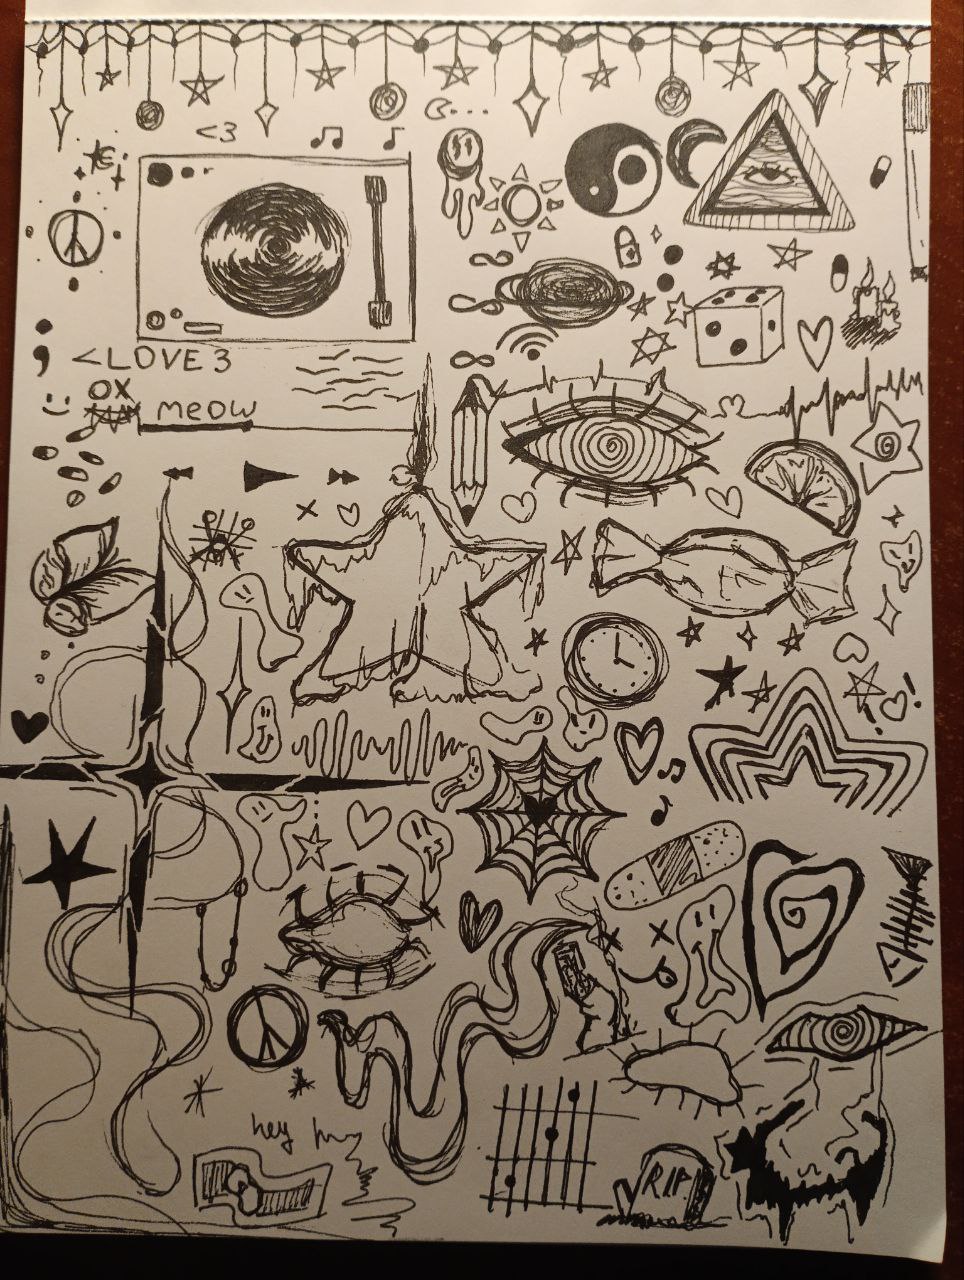 <3
<LOVE 3
OX
meow
hey
RIP.